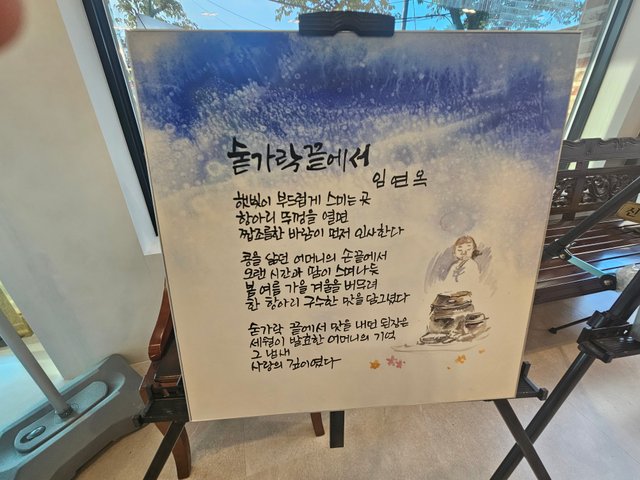 숟가락 끝에서
임연옥
햇빛이 부드럽게 스미는 곳
항아리 뚜껑을 열면
짭조름한 바람이 먼저 인사한다
콩을 삶던 어머니의 손끝에서
오랜 시간과 땀이 스며나듯
봄 여름 가을 겨울을 버무려
한 항아리 구수한 맛을 담그셨다
숟가락 끝에서 맛을 내던 된장은
세월이 발효한 어머니의 기억
그 냄새
사랑의 깊이였다